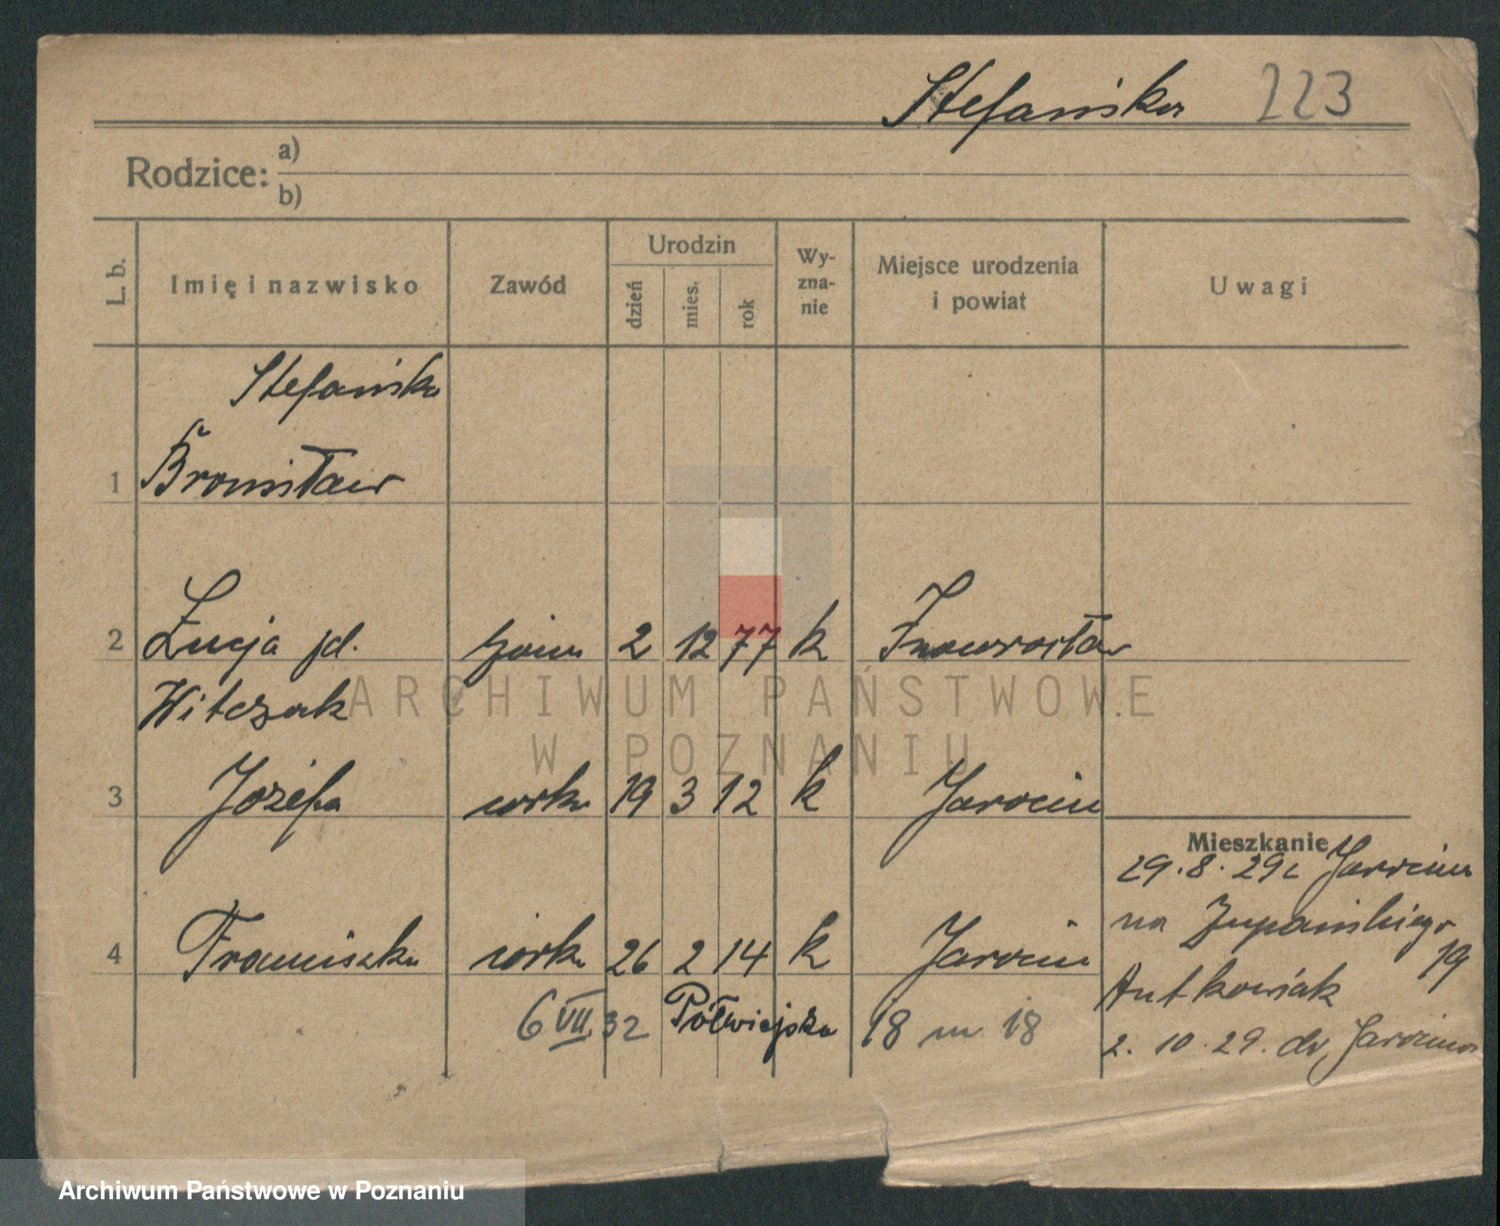 Stefańska 223
Rodzice: a)
b)
L. b.
Imię i nazwisko
Zawód
Urodzin
dzień
mies.
rok
Wy-
zna-
nie
Miejsce urodzenia
i powiat
Uwagi
Stefańska
1 Bronisław
2 Łucja jd. 2 12 77 k Inowrocław
Witczak
3 Józefa córka 19 3 12 k Jarocin
4 Franciszka córka 26 2 14 k Jarocin
Mieszkanie
29.8.29 z Jarocina
na Żupańskiego
19
Antkowiak
2.10.29. do Jarocina
6 VII 32 Półwiejska 18 m 18
ARCHIWUM PAŃSTWOWE
W POZNANIU
Archiwum Państwowe w Poznaniu